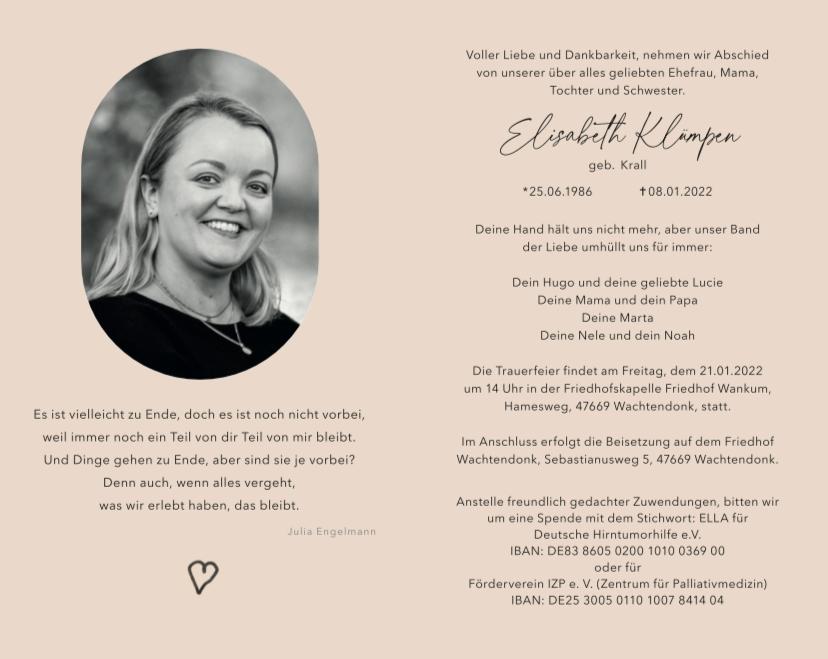 Es ist vielleicht zu Ende, doch es ist noch nicht vorbei,
weil immer noch ein Teil von dir Teil von mir bleibt.
Und Dinge gehen zu Ende, aber sind sie je vorbei?
Denn auch, wenn alles vergeht,
was wir erlebt haben, das bleibt.
Julia Engelmann
Voller Liebe und Dankbarkeit, nehmen wir Abschied
von unserer über alles geliebten Ehefrau, Mama,
Tochter und Schwester.
Elisabeth Klümpen
geb. Krall
*25.06.1986 ✝08.01.2022
Deine Hand hält uns nicht mehr, aber unser Band
der Liebe umhüllt uns für immer:
Dein Hugo und deine geliebte Lucie
Deine Mama und dein Papa
Deine Marta
Deine Nele und dein Noah
Die Trauerfeier findet am Freitag, dem 21.01.2022
um 14 Uhr in der Friedhofskapelle Friedhof Wankum,
Hamesweg, 47669 Wachtendonk, statt.
Im Anschluss erfolgt die Beisetzung auf dem Friedhof
Wachtendonk, Sebastianusweg 5, 47669 Wachtendonk.
Anstelle freundlich gedachter Zuwendungen, bitten wir
um eine Spende mit dem Stichwort: ELLA für
Deutsche Hirntumorhilfe e.V.
IBAN: DE83 8605 0200 1010 0369 00
oder für
Förderverein IZP e. V. (Zentrum für Palliativmedizin)
IBAN: DE25 3005 0110 1007 8414 04